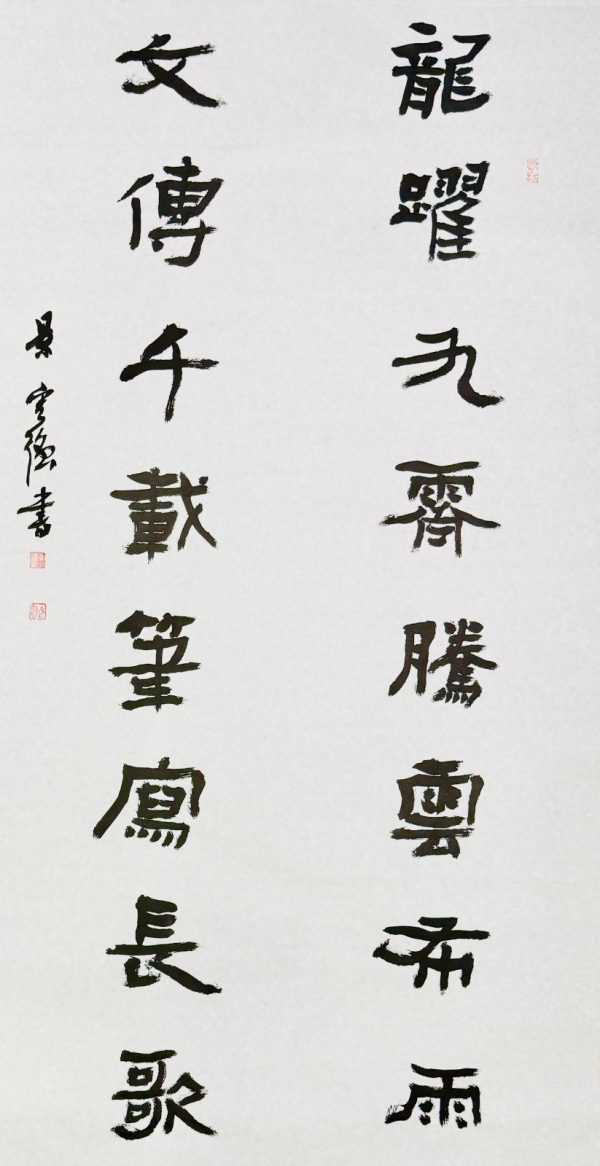 龍躍九霄騰雲布雨
文傳千載筆寫長歌
書